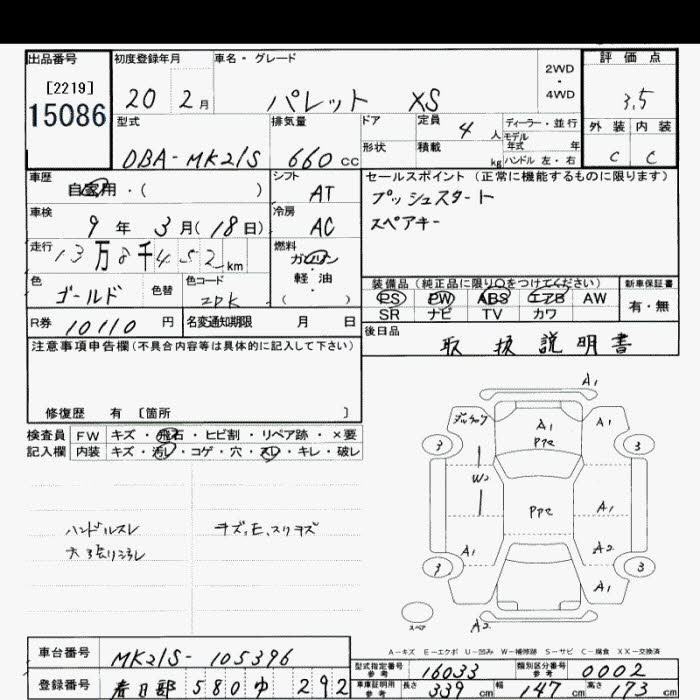 出品番号 初度登録年月 車名・グレード 2WD ・ 4WD 評価点
[2219]
15086
20 2月 パレット XS 3.5
型式 排気量 ドア 定員 4人 ディーラー・並行 外装 内装
モデル年式 年
形状 積載 kg ハンドル 左・右
DBA-MK21S 660cc C C
車歴 自家用・( ) シフト AT セールスポイント (正常に機能するものに限ります)
プッシュスタート
スペアキー
車検 9年 3月(18日) 冷房 AC
走行 13万8千452km 燃料 ガソリン・軽油 ( )
色 ゴールド 色替 色コード ZDK
装備品 (純正品に限り○をつけてください) 新車保証書
PS PW ABS エアB AW 有・無
SR ナビ TV カワ
R券 10110円 名変通知期限 月 日
後日品 取扱説明書
注意事項申告欄(不具合内容等は具体的に記入して下さい)
修復歴 有 〔箇所 〕
検査員 FW キズ・飛石・ヒビ割・リペア跡・×要
記入欄 内装 キズ・汚れ・コゲ・穴・スレ・キレ・破レ
ハンドルスレ
A1
A1
PPe
A1
3
3
W2
PPe
A1
A1
A2
3
3
A1
スペア
A2
A-キズ E-エクボ U-凹み W-補修跡 S-サビ C-腐食 XX-交換済
車台番号 MK21S-105396
型式指定番号 参考 16033 類別区分番号 参考 0002
登録番号 春日部 580 ゆ 292
車庫証明用 参考 長さ 339cm 幅 147cm 高さ 173cm